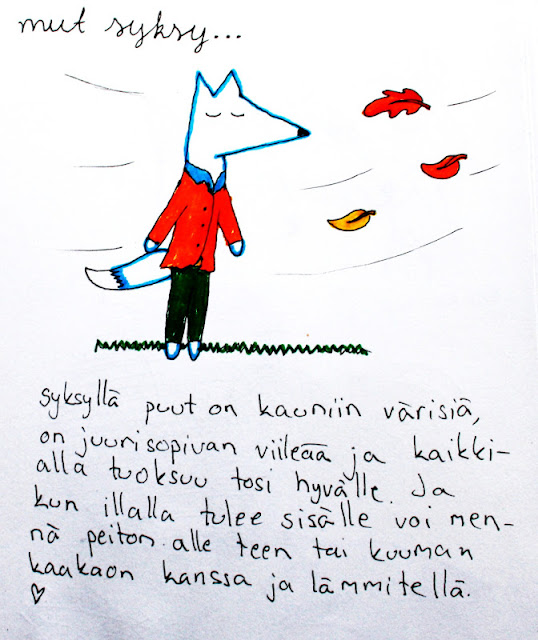 mut syksy...
syksyllä puut on kauniin värisiä,
on juuri sopivan viileää ja kaikki-
alla tuoksuu tosi hyvälle. Ja
kun illalla tulee sisälle voi men-
nä peiton alle teen tai kuuman
kaakaon kanssa ja lämmitellä.
♡